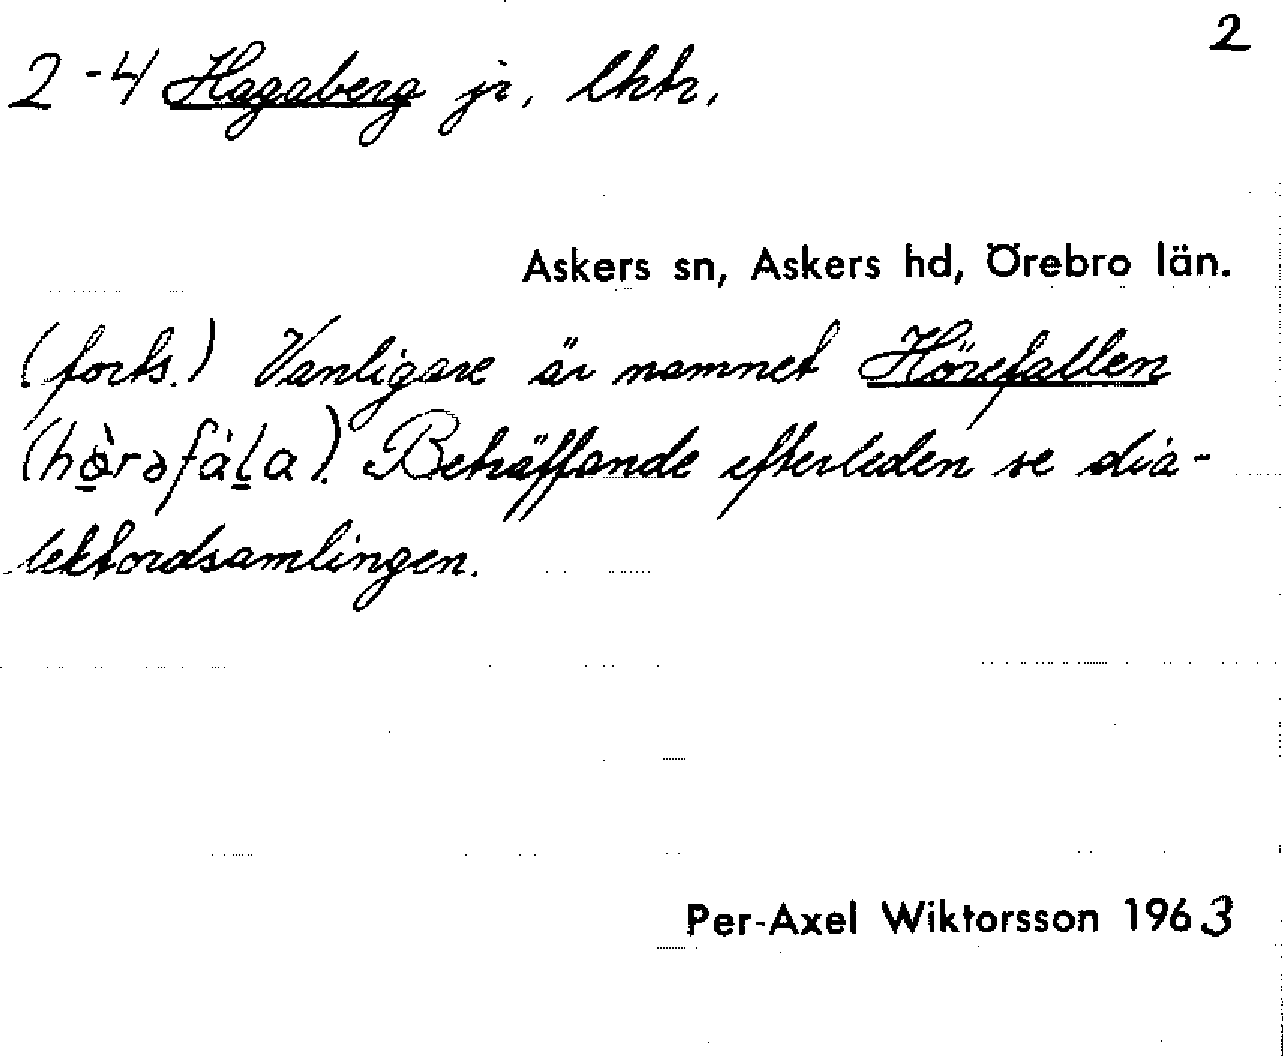 2
2-4 Hagaberg jr, lht,
Askers sn, Askers hd, Örebro län.
(forts.) Vanligare är namnet Hörefallen
Beträffande efterleden se dia-
lektordsamlingen.
Per-Axel Wiktorsson 1963